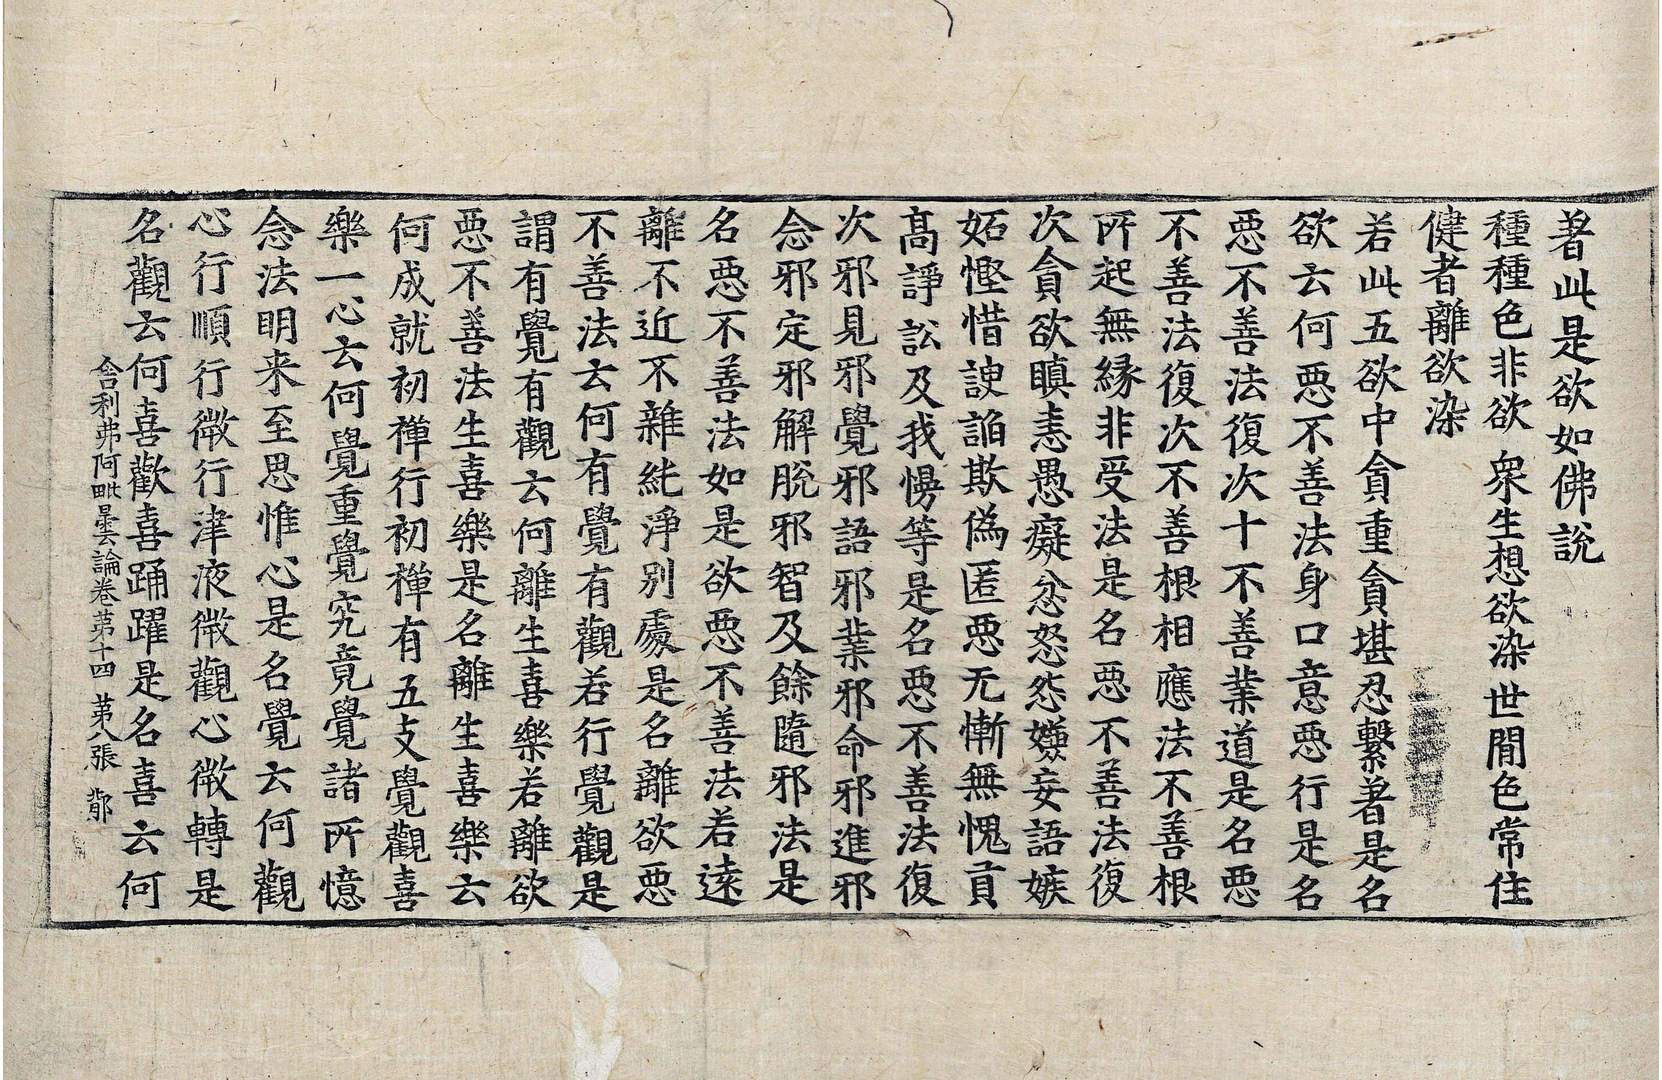 著此是欲如佛說
種種色非欲衆生想欲染世閒色常住
健者離欲染
若此五欲中貪重貪堪忍繫著是名
欲云何惡不善法身口意惡行是名
惡不善法復次十不善業道是名惡
不善法復次不善根相應法不善根
所起無緣非受法是名惡不善法復
次貪欲瞋恚愚癡忿怒怨嫌妄語嫉
妬慳惜諛諂欺偽匿惡无慚無愧貢
髙諍訟及我慢等是名惡不善法復
次邪見邪覺邪語邪業邪命邪進邪
念邪定邪解脫邪智及餘隨邪法是
名惡不善法如是欲惡不善法若遠
離不近不雜純淨別處是名離欲惡
不善法云何有覺有觀若行覺觀是
謂有覺有觀云何離生喜樂若離欲
惡不善法生喜樂是名離生喜樂云
何成就初禪行初禪有五支覺觀喜
樂一心云何覺重覺究竟覺諸所憶
念法明来至思惟心是名覺云何觀
心行順行微行津液微觀心微轉是
名觀云何喜歡喜踊躍是名喜云何
舍利弗阿毗曇論卷苐十四 苐八張